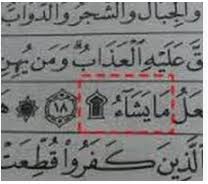 وَالْجِبَالُ وَالشَّجَرُ وَالدَّوَابُّ
قَّ عَلَيْهِ الْعَذَابُ ۗ وَمَن يُهِنِ
عَلُ مَا يَشَاءُ ۩ ۝١٨
الَّذِينَ كَفَرُوا قُطِّعَتْ